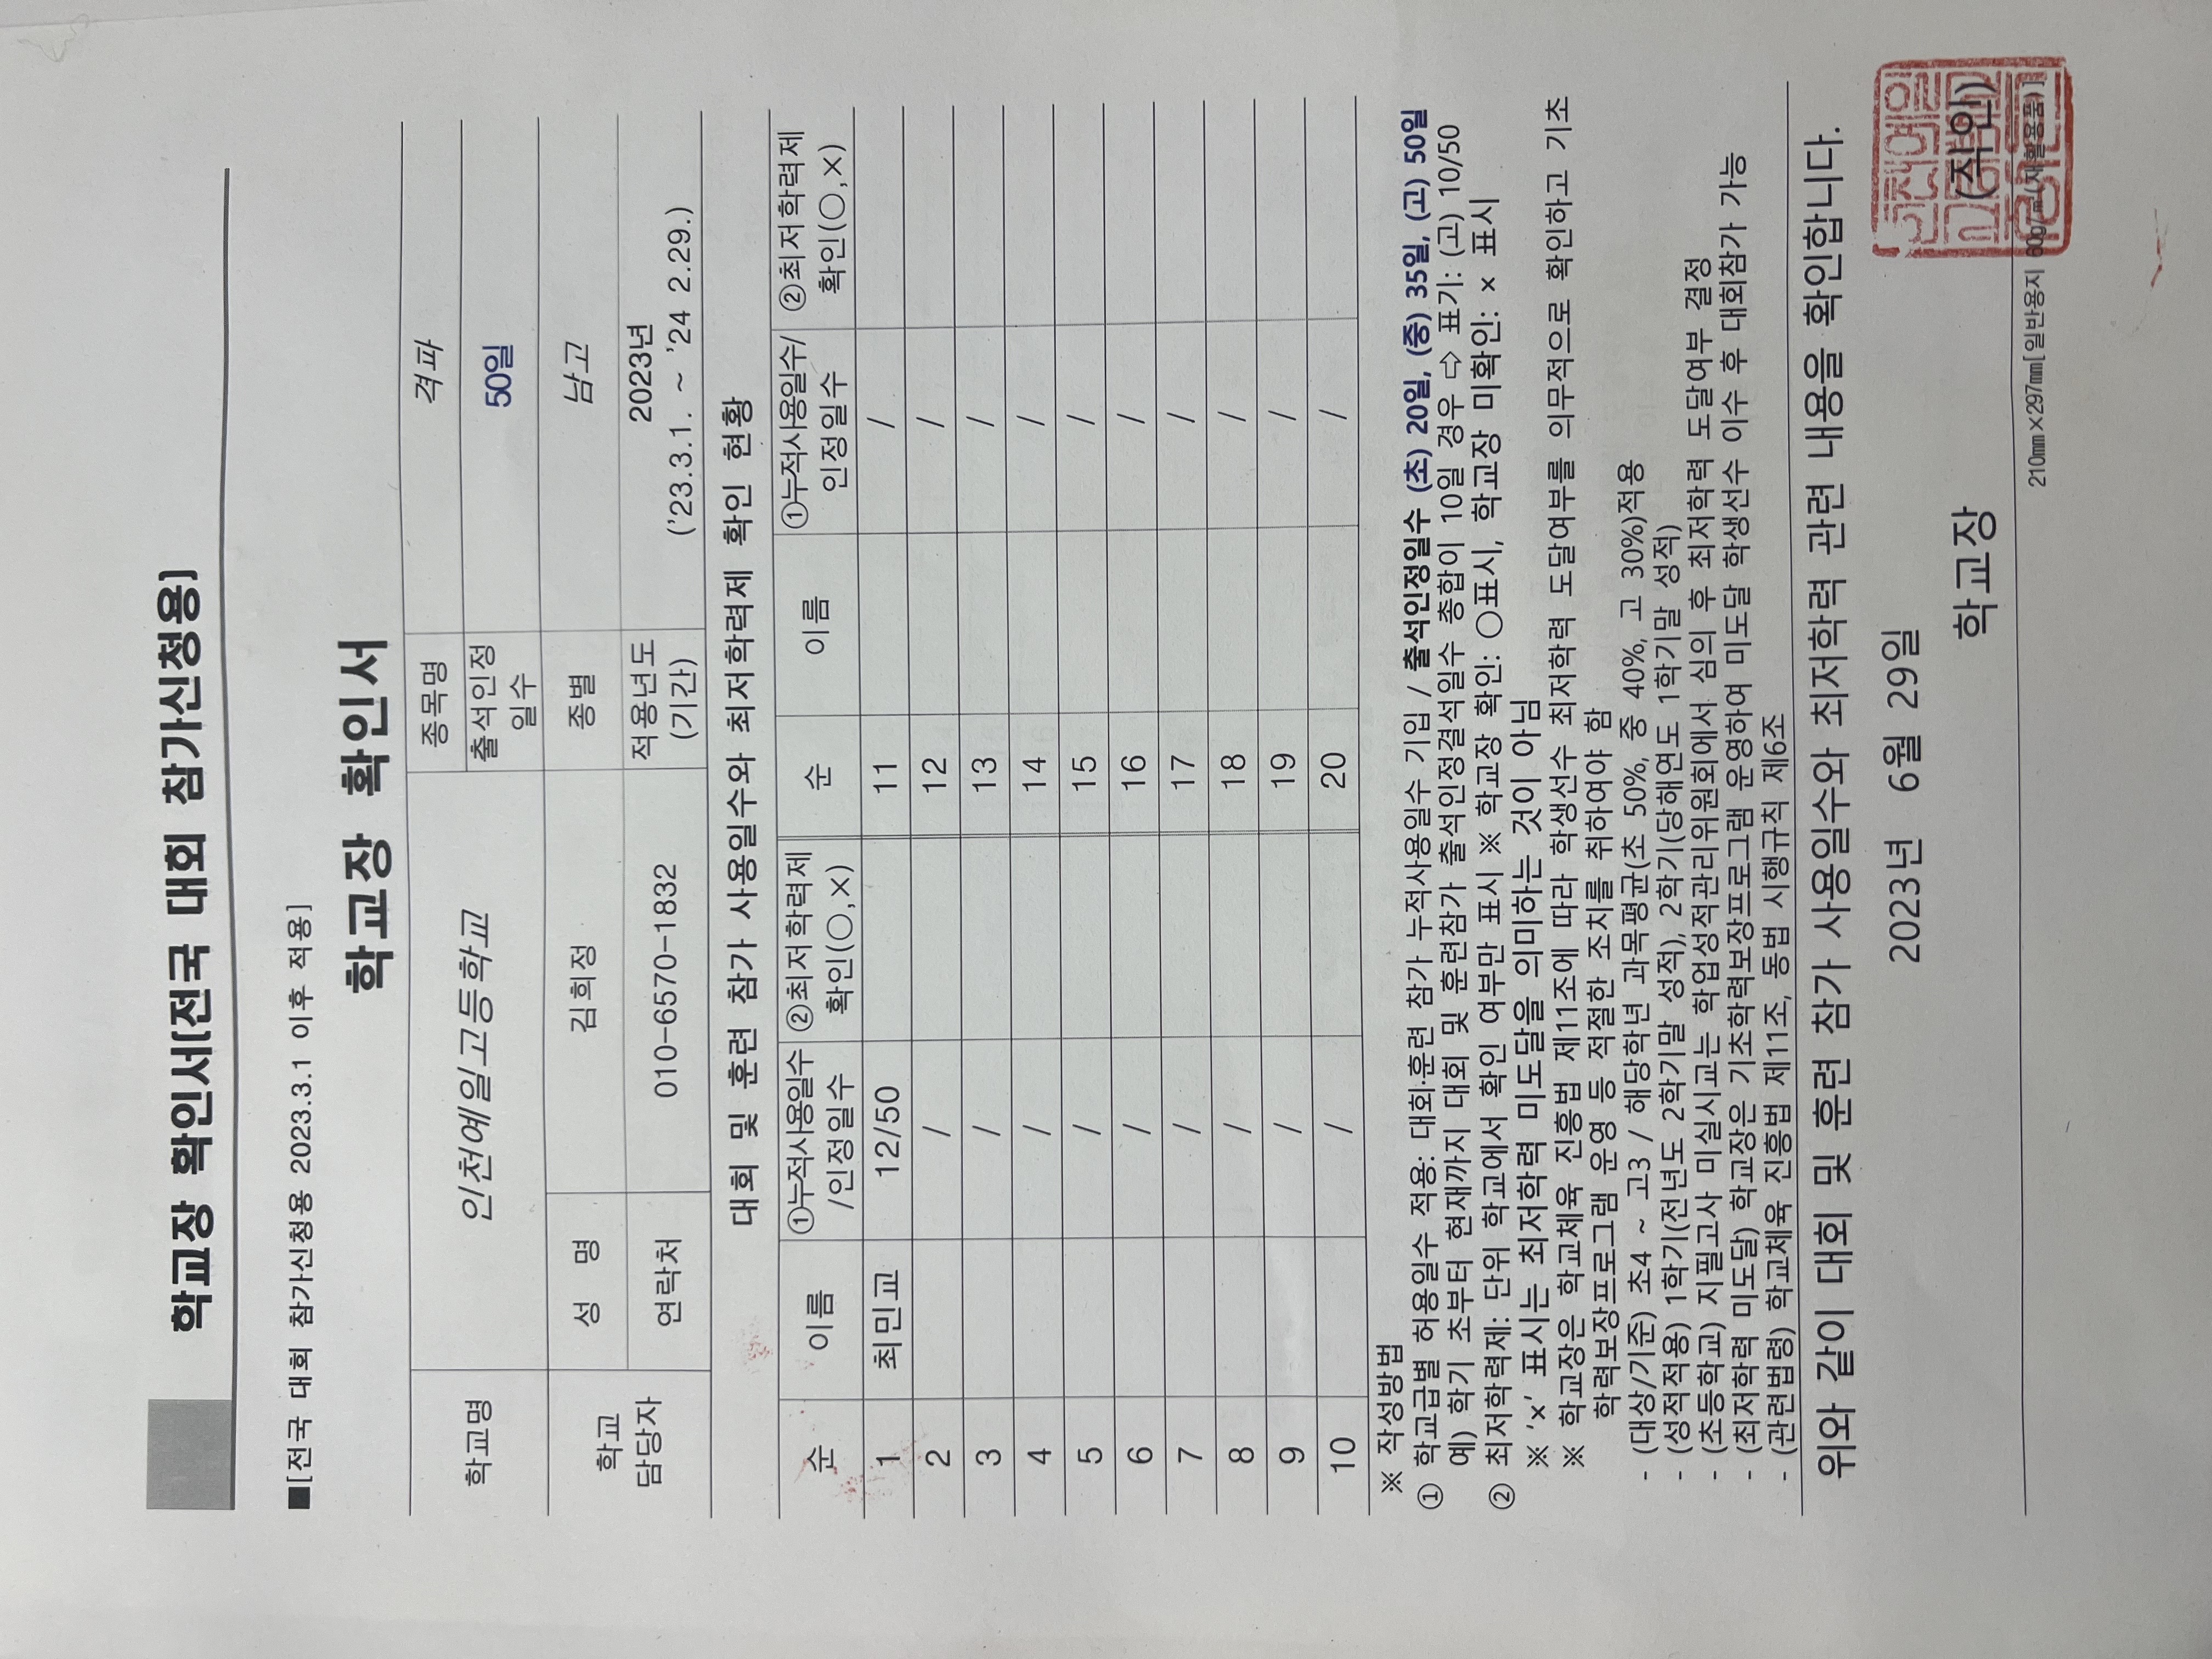 학교장 확인서[전국 대회 참가신청용]
■[전국 대회 참가신청용 2023.3.1 이후 적용]
학교장 확인서
학교명 인천예일고등학교 종목명 격파
출석인정일수 50일
학교 담당자 성 명 김희정 종별 남고
연락처 010-6570-1832 적용년도(기간) 2023년 ('23.3.1. ~ '24 2.29.)
대회 및 훈련 참가 사용일수와 최저학력제 확인 현황
순 이름 ①누적사용일수/인정일수 ②최저학력제 확인(○,×) 순 이름 ①누적사용일수/인정일수 ②최저학력제 확인(○,×)
1 최민교 12/50 11 /
2 / 12 /
3 / 13 /
4 / 14 /
5 / 15 /
6 / 16 /
7 / 17 /
8 / 18 /
9 / 19 /
10 / 20 /
※ 작성방법
① 학교급별 허용일수 적용: 대회·훈련 참가 누적사용일수 기입 / 출석인정일수 (초) 20일, (중) 35일, (고) 50일
예) 학기 초부터 현재까지 대회 및 훈련참가 출석인정결석일수 총합이 10일 경우 ⇨ 표기: (고) 10/50
② 최저학력제: 단위 학교에서 확인 여부만 표시 ※ 학교장 확인: ○표시, 학교장 미확인: × 표시
※ '×' 표시는 최저학력 미도달을 의미하는 것이 아님
※ 학교장은 학교체육 진흥법 제11조에 따라 학생선수 최저학력 도달여부를 의무적으로 확인하고 기초
학력보장프로그램 운영 등 적절한 조치를 취하여야 함
- (대상/기준) 초4 ~ 고3 / 해당학년 과목평균(초 50%, 중 40%, 고 30%)적용
- (성적적용) 1학기(전년도 2학기말 성적), 2학기(당해연도 1학기말 성적)
- (초등학교) 지필고사 미실시교는 학업성적관리위원회에서 심의 후 최저학력 도달여부 결정
- (최저학력 미도달) 학교장은 기초학력보장프로그램 운영하여 미도달 학생선수 이수 후 대회참가 가능
- (관련법령) 학교체육 진흥법 제11조, 동법 시행규칙 제6조
위와 같이 대회 및 훈련 참가 사용일수와 최저학력 관련 내용을 확인합니다.
2023년 6월 29일
학교장 (직인)
210㎜×297㎜[일반용지 60g/㎡(재활용품)]